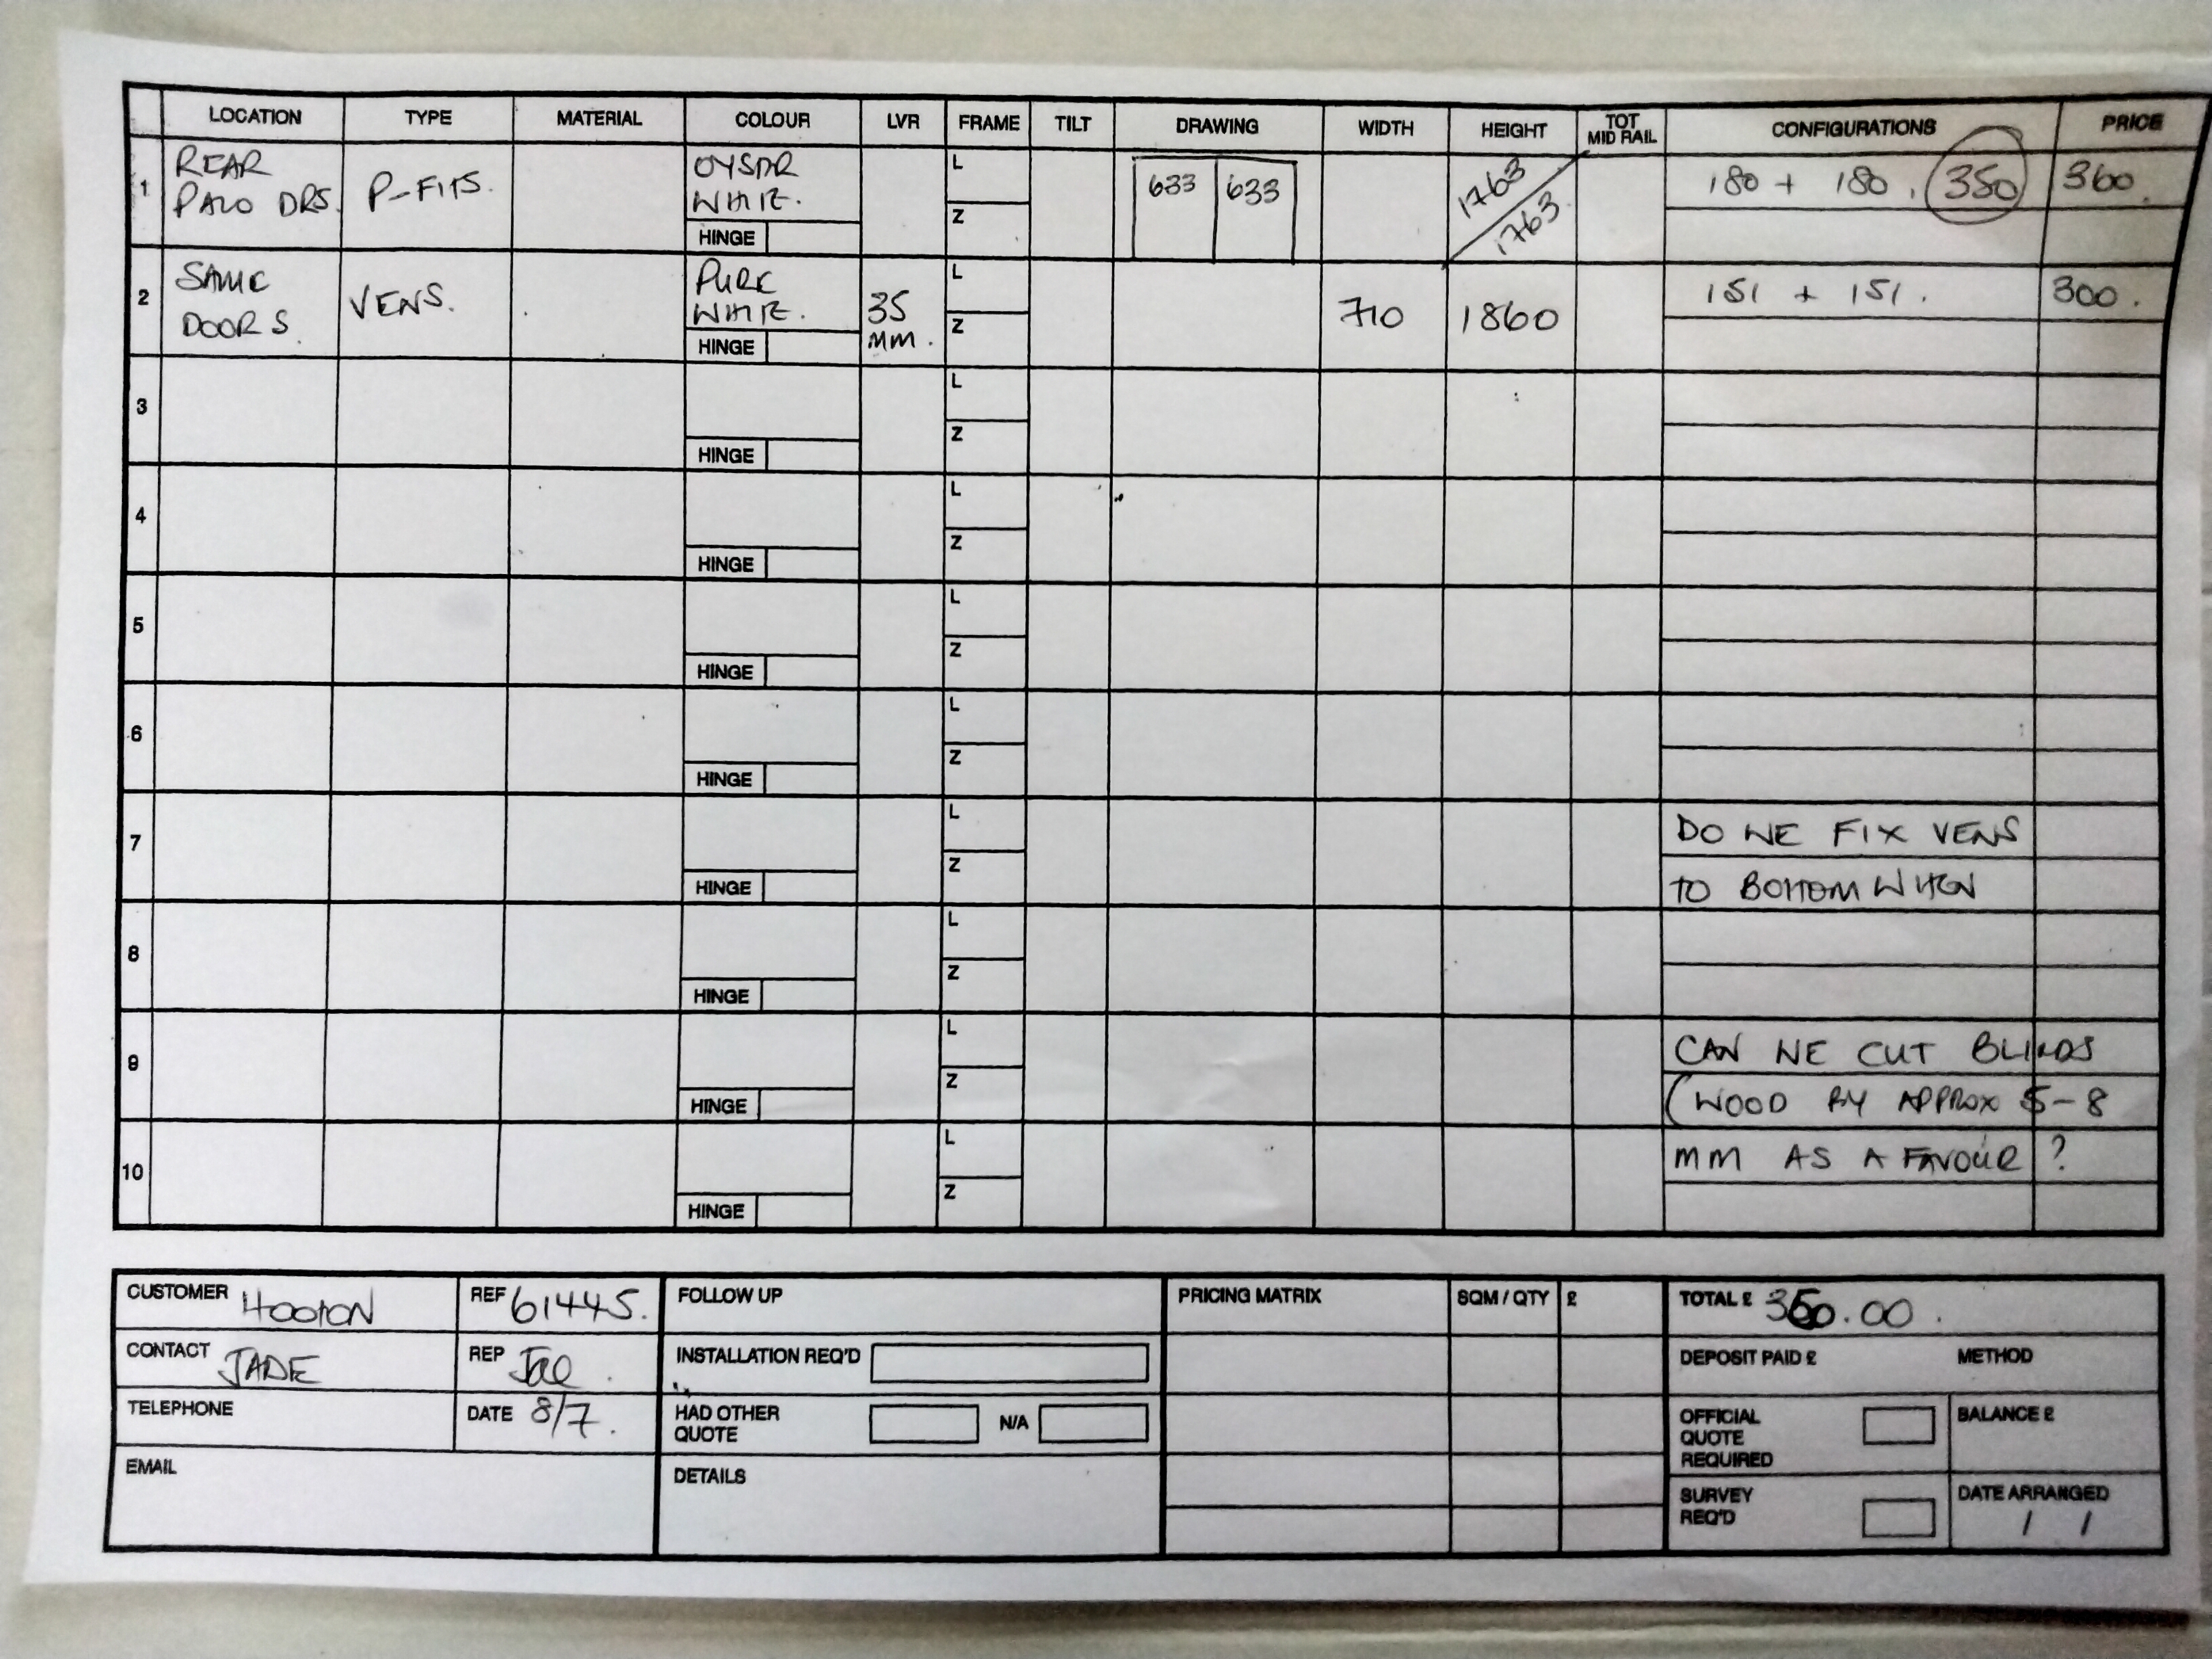 LOCATION TYPE MATERIAL COLOUR LVR FRAME TILT DRAWING WIDTH HEIGHT TOT MID RAIL CONFIGURATIONS PRICE
1 REAR PATIO DRS. P-FITS. OYSTR WHITE. HINGE L Z 633 633 1763/1763. 180 + 180. 350 360.
2 SAME DOORS VENS. PURE WHITE. HINGE 35 MM. L Z 710 1860 151 + 151. 300.
3 HINGE L Z
4 HINGE L Z
5 HINGE L Z
6 HINGE L Z
7 HINGE L Z DO WE FIX VENS
TO BOTTOM WHEN
8 HINGE L Z
9 HINGE L Z CAN WE CUT BLINDS
(WOOD BY APPROX 5-8
10 HINGE L Z MM AS A FAVOUR ?
CUSTOMER HOOTON REF 61445. FOLLOW UP PRICING MATRIX SQM / QTY £ TOTAL £ 350.00.
CONTACT JADE REP INSTALLATION REQ'D DEPOSIT PAID £ METHOD
TELEPHONE DATE 8/7. HAD OTHER QUOTE N/A OFFICIAL QUOTE REQUIRED BALANCE £
EMAIL DETAILS SURVEY REQ'D DATE ARRANGED / /